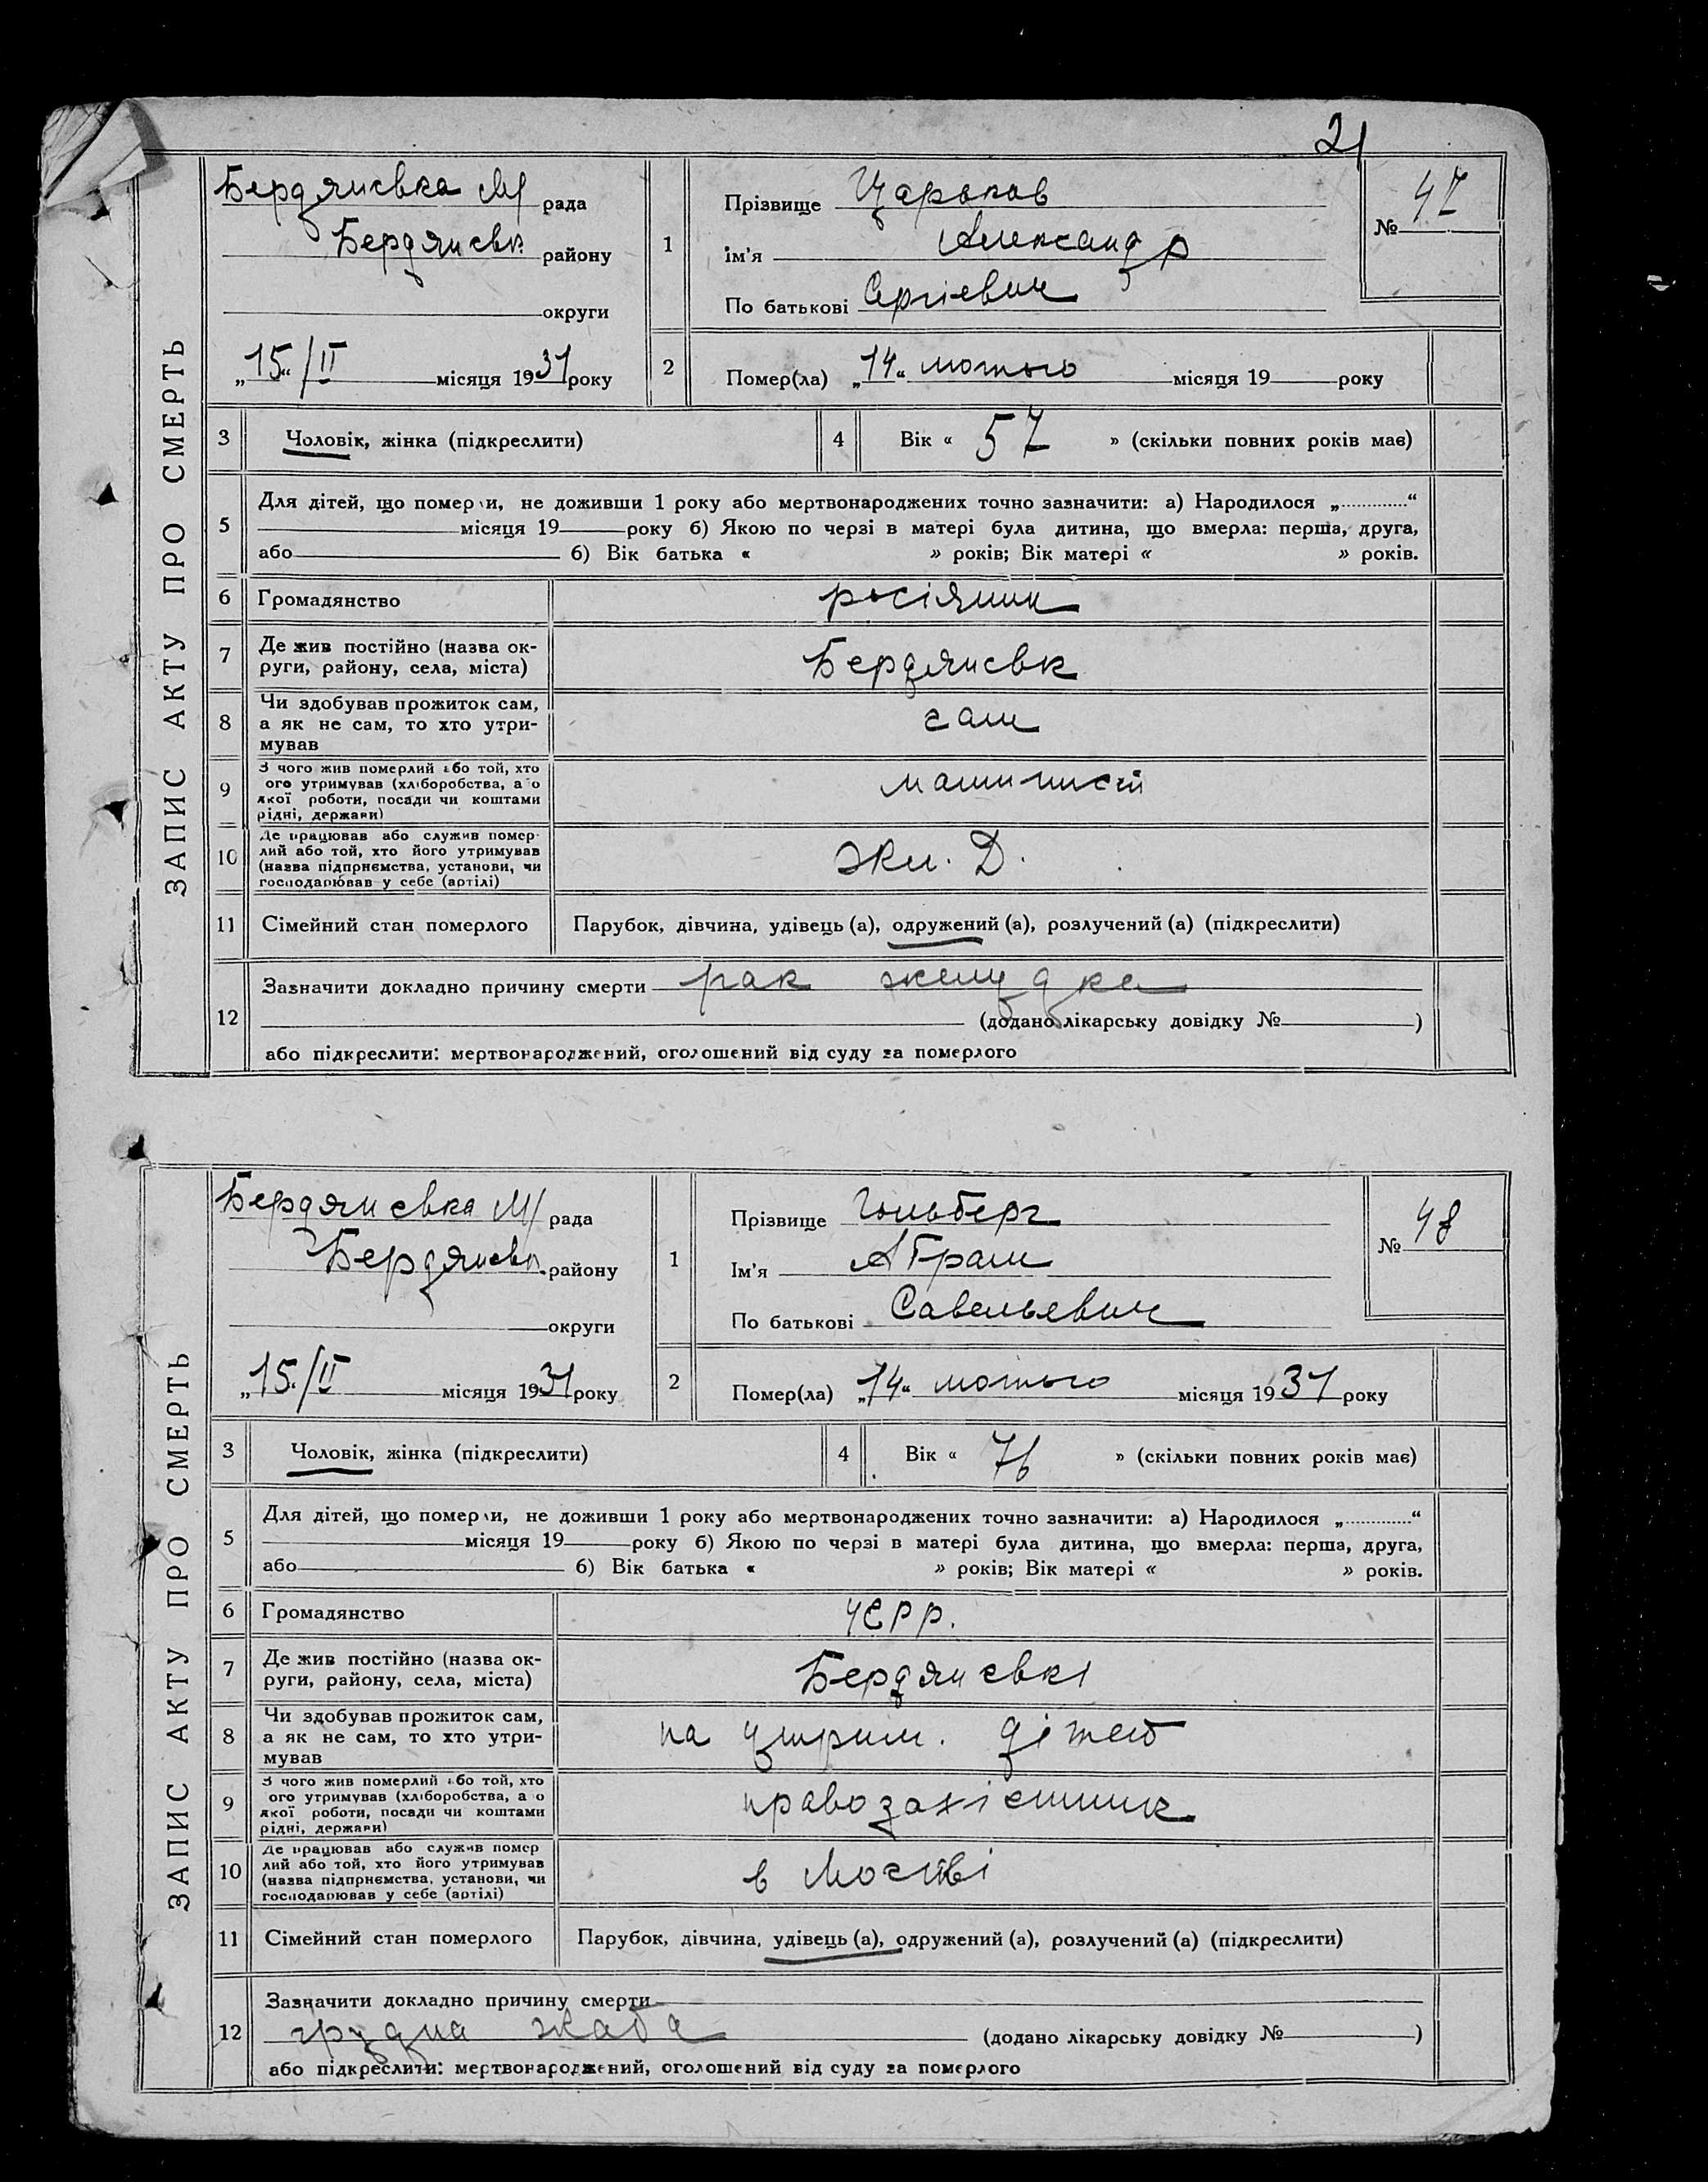 21
ЗАПИС АКТУ ПРО СМЕРТЬ
Бердянська М/рада
Бердянськ. району
округи
„15“/II місяця 1931 року
1
Прізвище
Ім'я Александр
По батькові Сергієвич
№ 47
2
Помер(ла) „14“ лютого місяця 19 року
3 Чоловік, жінка (підкреслити)
4 Вік « 57 » (скільки повних років має)
5
Для дітей, що померли, не доживши 1 року або мертвонароджених точно зазначити: а) Народилося „ “
місяця 19 року б) Якою по черзі в матері була дитина, що вмерла: перша, друга,
або б) Вік батька « » років; Вік матері « » років.
6 Громадянство росіянин
7
Де жив постійно (назва ок-
руги, району, села, міста)
Бердянськ
8
Чи здобував прожиток сам,
а як не сам, то хто утри-
мував
сам
9
З чого жив померлий або той, хто
ого утримував (хліборобства, або
якої роботи, посади чи коштами
рідні, держави)
машиніст
10
Де працював або служив помер-
лий або той, хто його утримував
(назва підприємства, установи, чи
господарював у себе (артілі)
Д.
11 Сімейний стан померлого Парубок, дівчина, удівець (а), одружений (а), розлучений (а) (підкреслити)
12
Зазначити докладно причину смерти рак желудка
(додано лікарську довідку № )
або підкреслити: мертвонароджений, оголошений від суду за померлого
ЗАПИС АКТУ ПРО СМЕРТЬ
Бердянська М/рада
Бердянськ. району
округи
„15“/II місяця 1931 року
1
Прізвище Гольберг
Ім'я Абрам
По батькові Савельевич
№ 48
2
Помер(ла) „14“ лютого місяця 1931 року
3 Чоловік, жінка (підкреслити)
4 Вік « 76 » (скільки повних років має)
5
Для дітей, що померли, не доживши 1 року або мертвонароджених точно зазначити: а) Народилося „ “
місяця 19 року б) Якою по черзі в матері була дитина, що вмерла: перша, друга,
або б) Вік батька « » років; Вік матері « » років.
6 Громадянство УСРР.
7
Де жив постійно (назва ок-
руги, району, села, міста)
Бердянські
8
Чи здобував прожиток сам,
а як не сам, то хто утри-
мував
на утрим. дітей
9
З чого жив померлий або той, хто
ого утримував (хліборобства, або
якої роботи, посади чи коштами
рідні, держави)
правозахісник
10
Де працював або служив помер
лий або той, хто його утримував
(назва підприємства, установи, чи
господарював у себе (артілі)
в Москві
11 Сімейний стан померлого Парубок, дівчина, удівець (а), одружений (а), розлучений (а) (підкреслити)
12
Зазначити докладно причину смерти
грудна жаба (додано лікарську довідку № )
або підкреслити: мертвонароджений, оголошений від суду за померлого